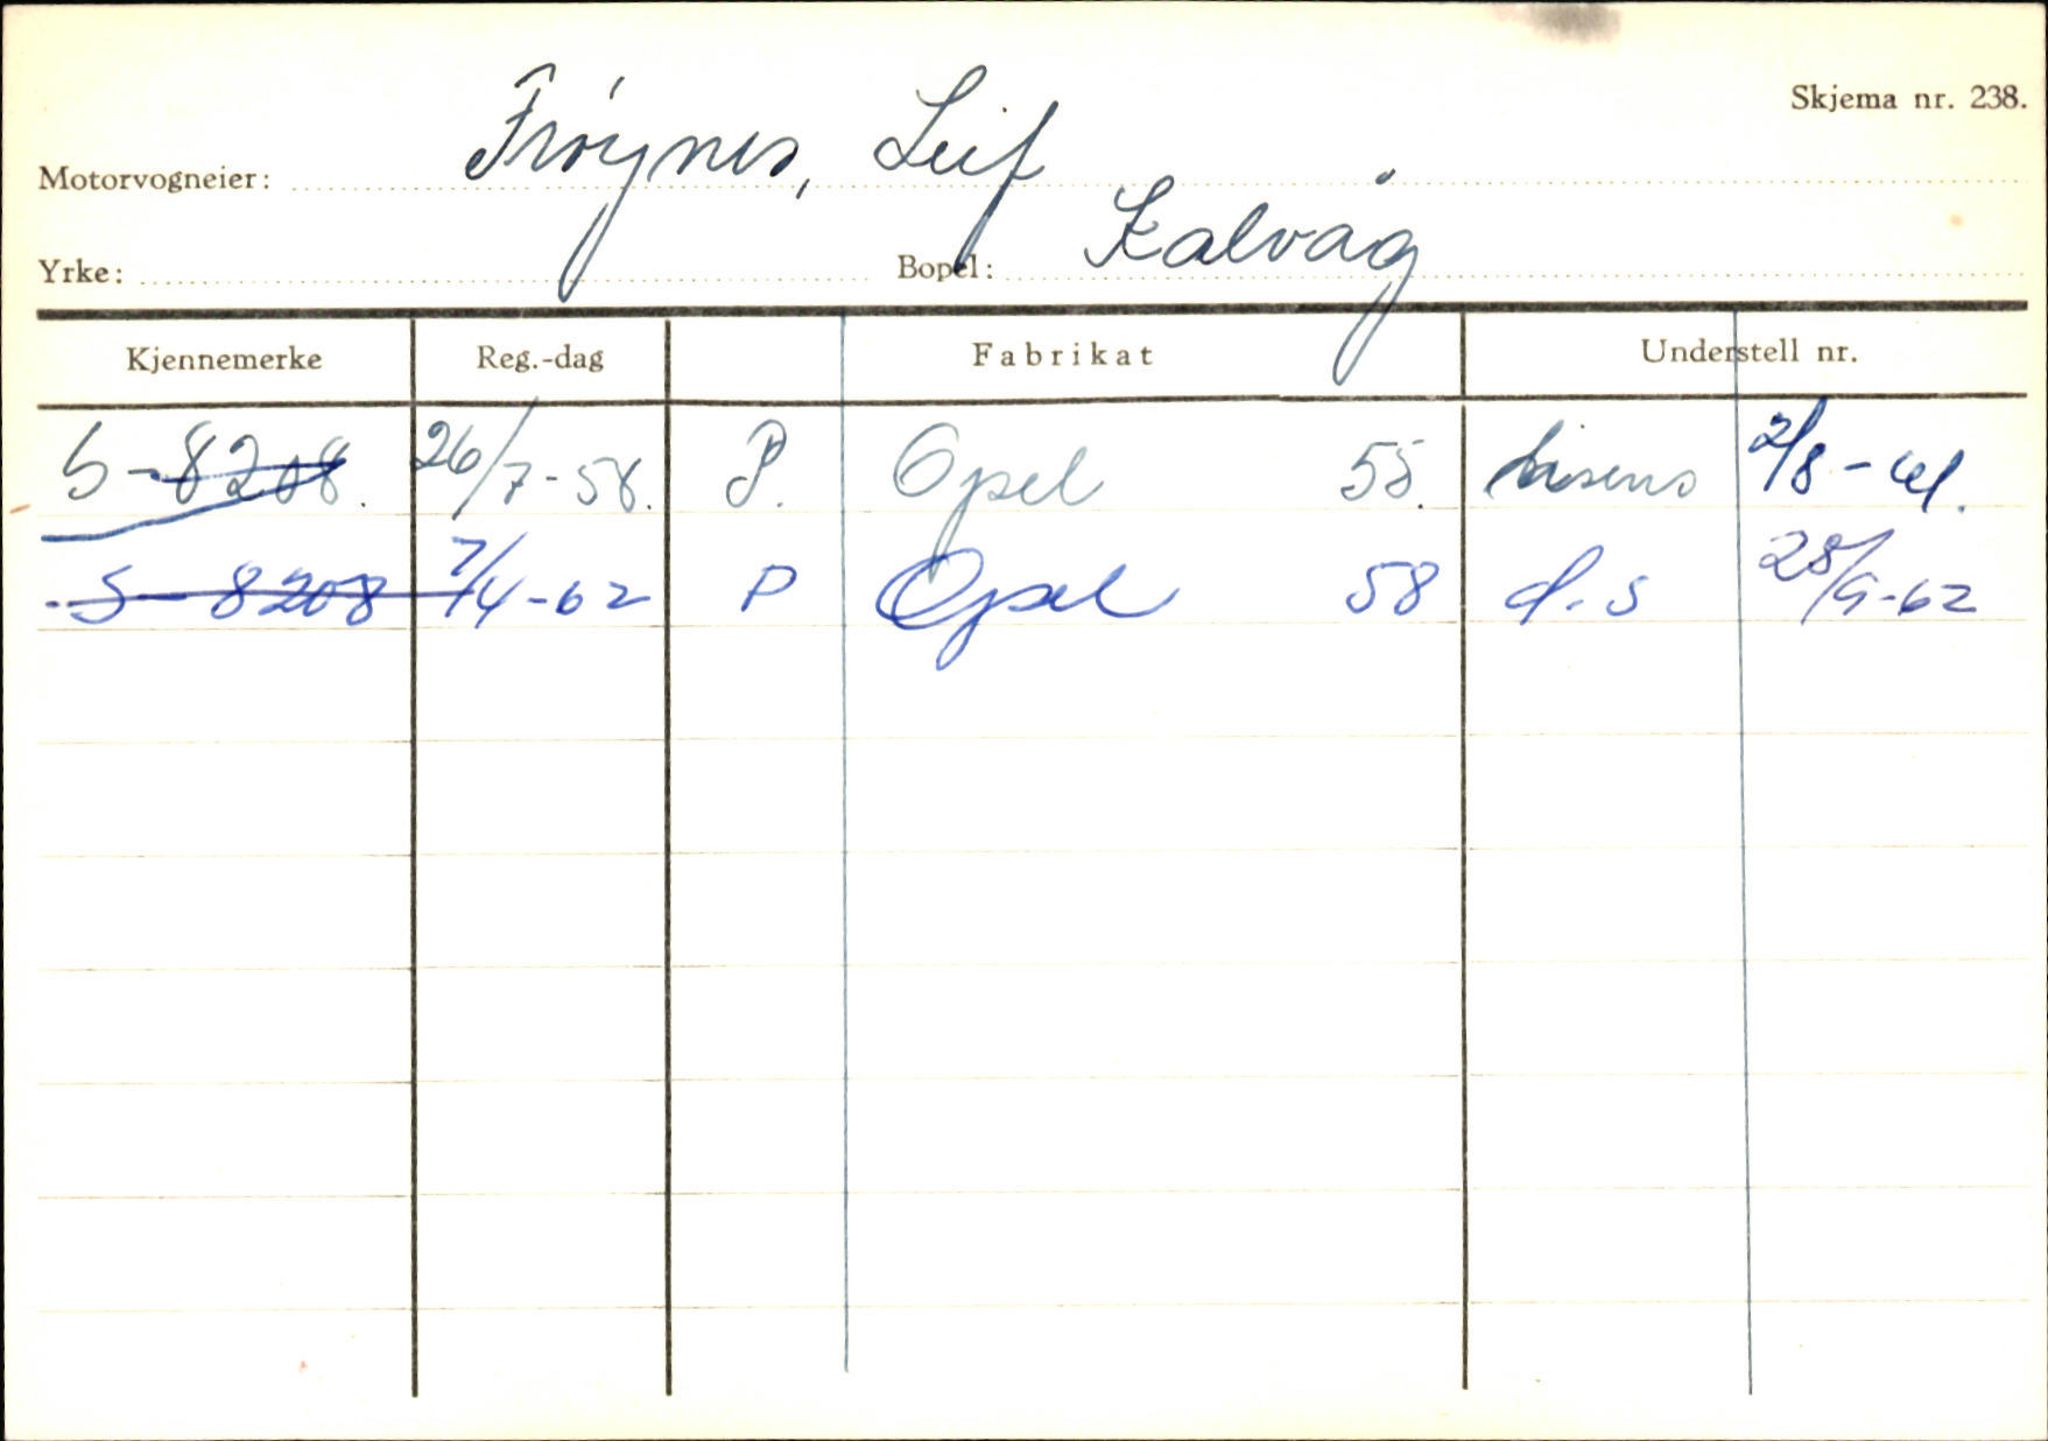 Skjema nr. 238.
Motorvogneier: Frøynes, Leif
Yrke: Bopel: Kalvåg
Kjennemerke Reg.-dag Fabrikat Understell nr.
S-8208. 26/7-58. P. Opel 55. Lisens 2/8-61.
S-8208 7/4-62 P Opel 58 d.s 28/9-62